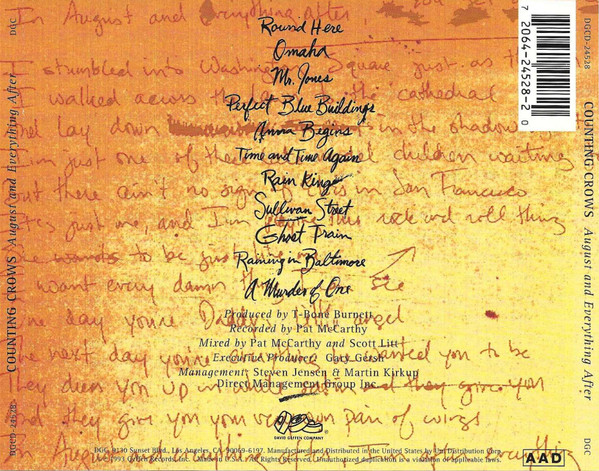 DGC
COUNTING CROWS August and Everything After
DGCD-24528
In August and Everything after
I stumbled into Washington Square just as the
I walked across the the cathedral
lay down in the shadow
just one of the children waiting
but there ain't no sign of in San Francisco
just me, and I'm this rock and roll thing
wants to be just
want every damn thing
One day you're Daddy's little angel
The next day you're wanted you to be
They dress you up in white and they give you
and they give you your own pair of wings
August Everything
Round Here
Omaha
Mr. Jones
Perfect Blue Buildings
Anna Begins
Time and Time Again
Rain King
Sullivan Street
Ghost Train
Raining in Baltimore
A Murder of One
Produced by T-Bone Burnett
Recorded by Pat McCarthy
Mixed by Pat McCarthy and Scott Litt
Executive Producer: Gary Gersh
Management: Steven Jensen & Martin Kirkup
Direct Management Group Inc.
DAVID GEFFEN COMPANY
DGC 9130 Sunset Blvd., Los Angeles, CA. 90069-6197. Manufactured and Distributed in the United States by Uni Distribution Corp.
1993 Geffen Records, Inc. Made in U.S.A. All Rights Reserved. Unauthorized duplication is a violation of applicable laws.
AAD
7 20642-4528-2 0
DGCD-24528
COUNTING CROWS August and Everything After
DGC